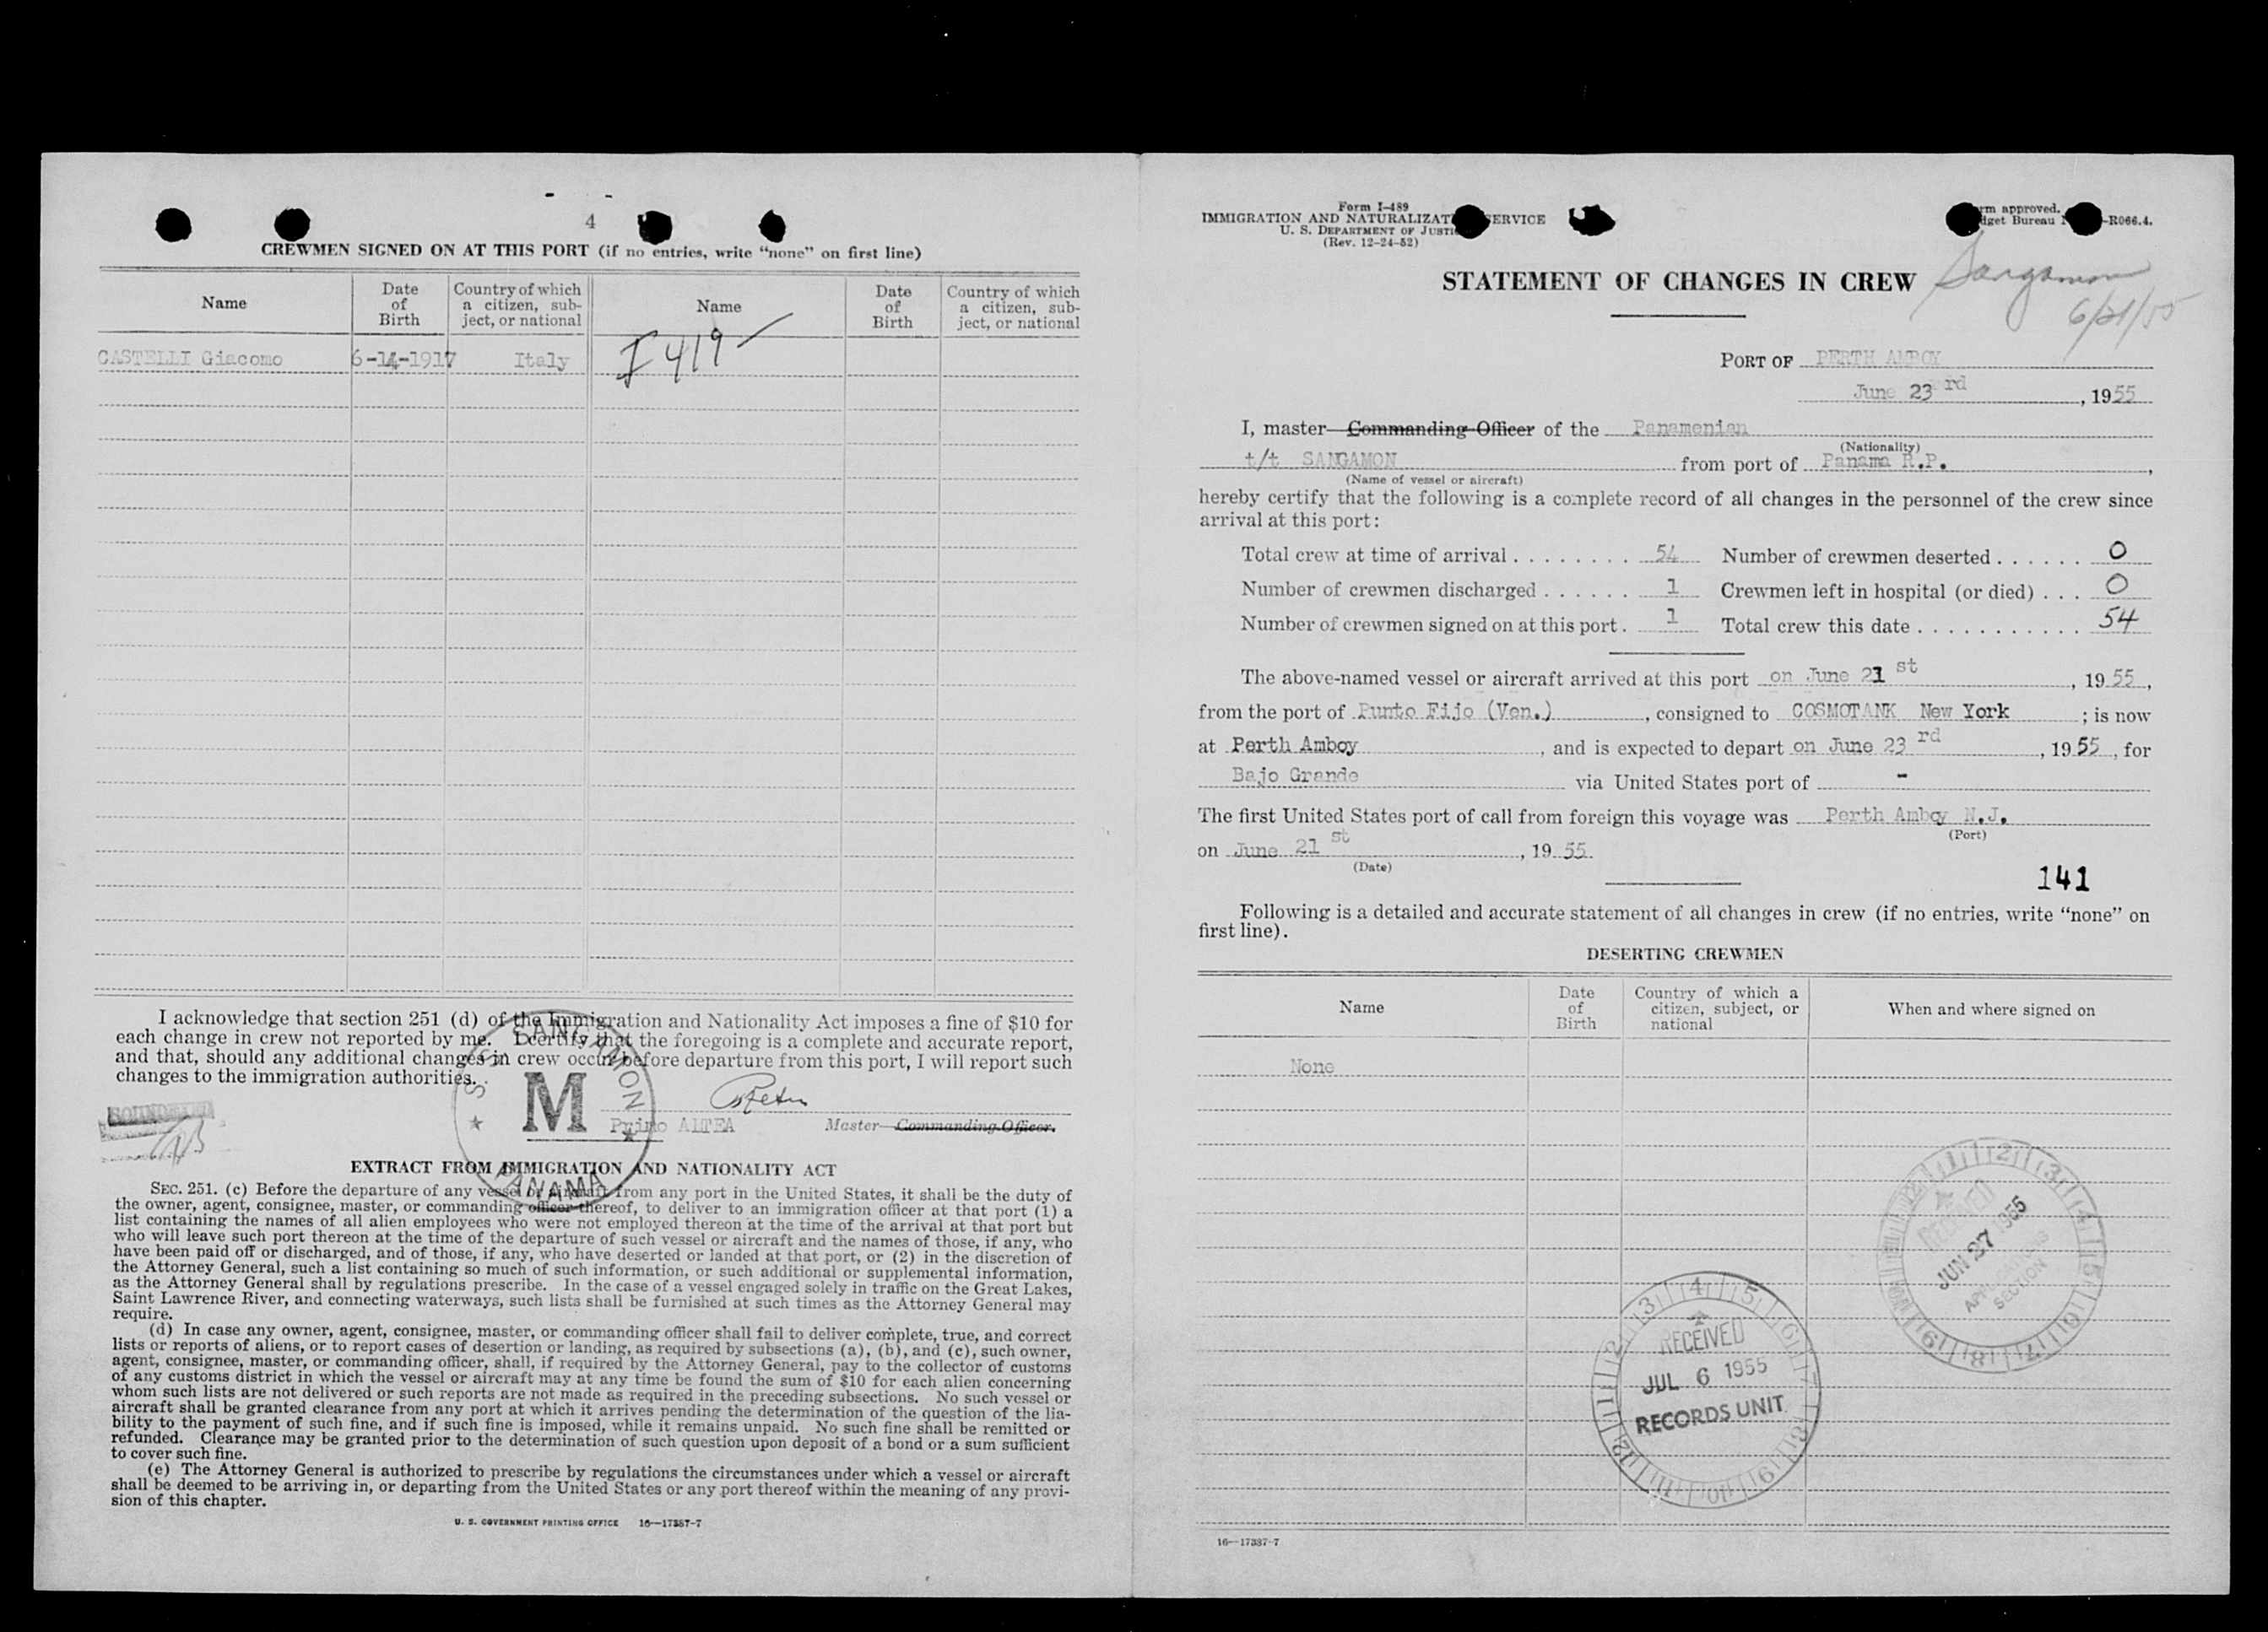 4
CREWMEN SIGNED ON AT THIS PORT (if no entries, write “none” on first line)
Name
Date of Birth
Country of which a citizen, subject, or national
Name
Date of Birth
Country of which a citizen, subject, or national
CASTELLI Giacomo 6-14-1917 Italy I 419
I acknowledge that section 251 (d) of the Immigration and Nationality Act imposes a fine of $10 for
each change in crew not reported by me. I certify that the foregoing is a complete and accurate report,
and that, should any additional changes in crew occur before departure from this port, I will report such
changes to the immigration authorities.
S/S SANGAMON
M
PANAMA
Primo ALTEA Master Commanding Officer.
EXTRACT FROM IMMIGRATION AND NATIONALITY ACT
SEC. 251. (c) Before the departure of any vessel or aircraft from any port in the United States, it shall be the duty of
the owner, agent, consignee, master, or commanding officer thereof, to deliver to an immigration officer at that port (1) a
list containing the names of all alien employees who were not employed thereon at the time of the arrival at that port but
who will leave such port thereon at the time of the departure of such vessel or aircraft and the names of those, if any, who
have been paid off or discharged, and of those, if any, who have deserted or landed at that port, or (2) in the discretion of
the Attorney General, such a list containing so much of such information, or such additional or supplemental information,
as the Attorney General shall by regulations prescribe. In the case of a vessel engaged solely in traffic on the Great Lakes,
Saint Lawrence River, and connecting waterways, such lists shall be furnished at such times as the Attorney General may
require.
(d) In case any owner, agent, consignee, master, or commanding officer shall fail to deliver complete, true, and correct
lists or reports of aliens, or to report cases of desertion or landing, as required by subsections (a), (b), and (c), such owner,
agent, consignee, master, or commanding officer, shall, if required by the Attorney General, pay to the collector of customs
of any customs district in which the vessel or aircraft may at any time be found the sum of $10 for each alien concerning
whom such lists are not delivered or such reports are not made as required in the preceding subsections. No such vessel or
aircraft shall be granted clearance from any port at which it arrives pending the determination of the question of the lia-
bility to the payment of such fine, and if such fine is imposed, while it remains unpaid. No such fine shall be remitted or
refunded. Clearance may be granted prior to the determination of such question upon deposit of a bond or a sum sufficient
to cover such fine.
(e) The Attorney General is authorized to prescribe by regulations the circumstances under which a vessel or aircraft
shall be deemed to be arriving in, or departing from the United States or any port thereof within the meaning of any provi-
sion of this chapter.
U. S. GOVERNMENT PRINTING OFFICE 16—17387-7
Form I-489
IMMIGRATION AND NATURALIZAT SERVICE
U. S. DEPARTMENT OF JUSTI
(Rev. 12-24-52)
rm approved.
dget Bureau -R066.4.
STATEMENT OF CHANGES IN CREW
Sangamon
6/21/55
PORT OF PERTH AMBOY
June 23 rd, 1955
I, master Commanding Officer of the Panamenian
(Nationality)
t/t SANGAMON from port of Panama R.P.,
(Name of vessel or aircraft)
hereby certify that the following is a complete record of all changes in the personnel of the crew since
arrival at this port:
Total crew at time of arrival . . . . . . . . 54 Number of crewmen deserted . . . . . . 0
Number of crewmen discharged . . . . . . 1 Crewmen left in hospital (or died) . . . 0
Number of crewmen signed on at this port. 1 Total crew this date . . . . . . . . . . . 54
The above-named vessel or aircraft arrived at this port on June 21 st, 19 55,
from the port of Punto Fijo (Ven.), consigned to COSMOTANK New York ; is now
at Perth Amboy, and is expected to depart on June 23 rd, 19 55, for
Bajo Grande via United States port of -
The first United States port of call from foreign this voyage was Perth Amboy N.J.
(Port)
on June 21 st, 19 55
(Date)
141
Following is a detailed and accurate statement of all changes in crew (if no entries, write “none” on
first line).
DESERTING CREWMEN
Name
Date of Birth
Country of which a citizen, subject, or national
When and where signed on
None
RECEIVED
JUN 27 1955
SECTION
RECEIVED
JUL 6 1955
RECORDS UNIT
16—17387-7